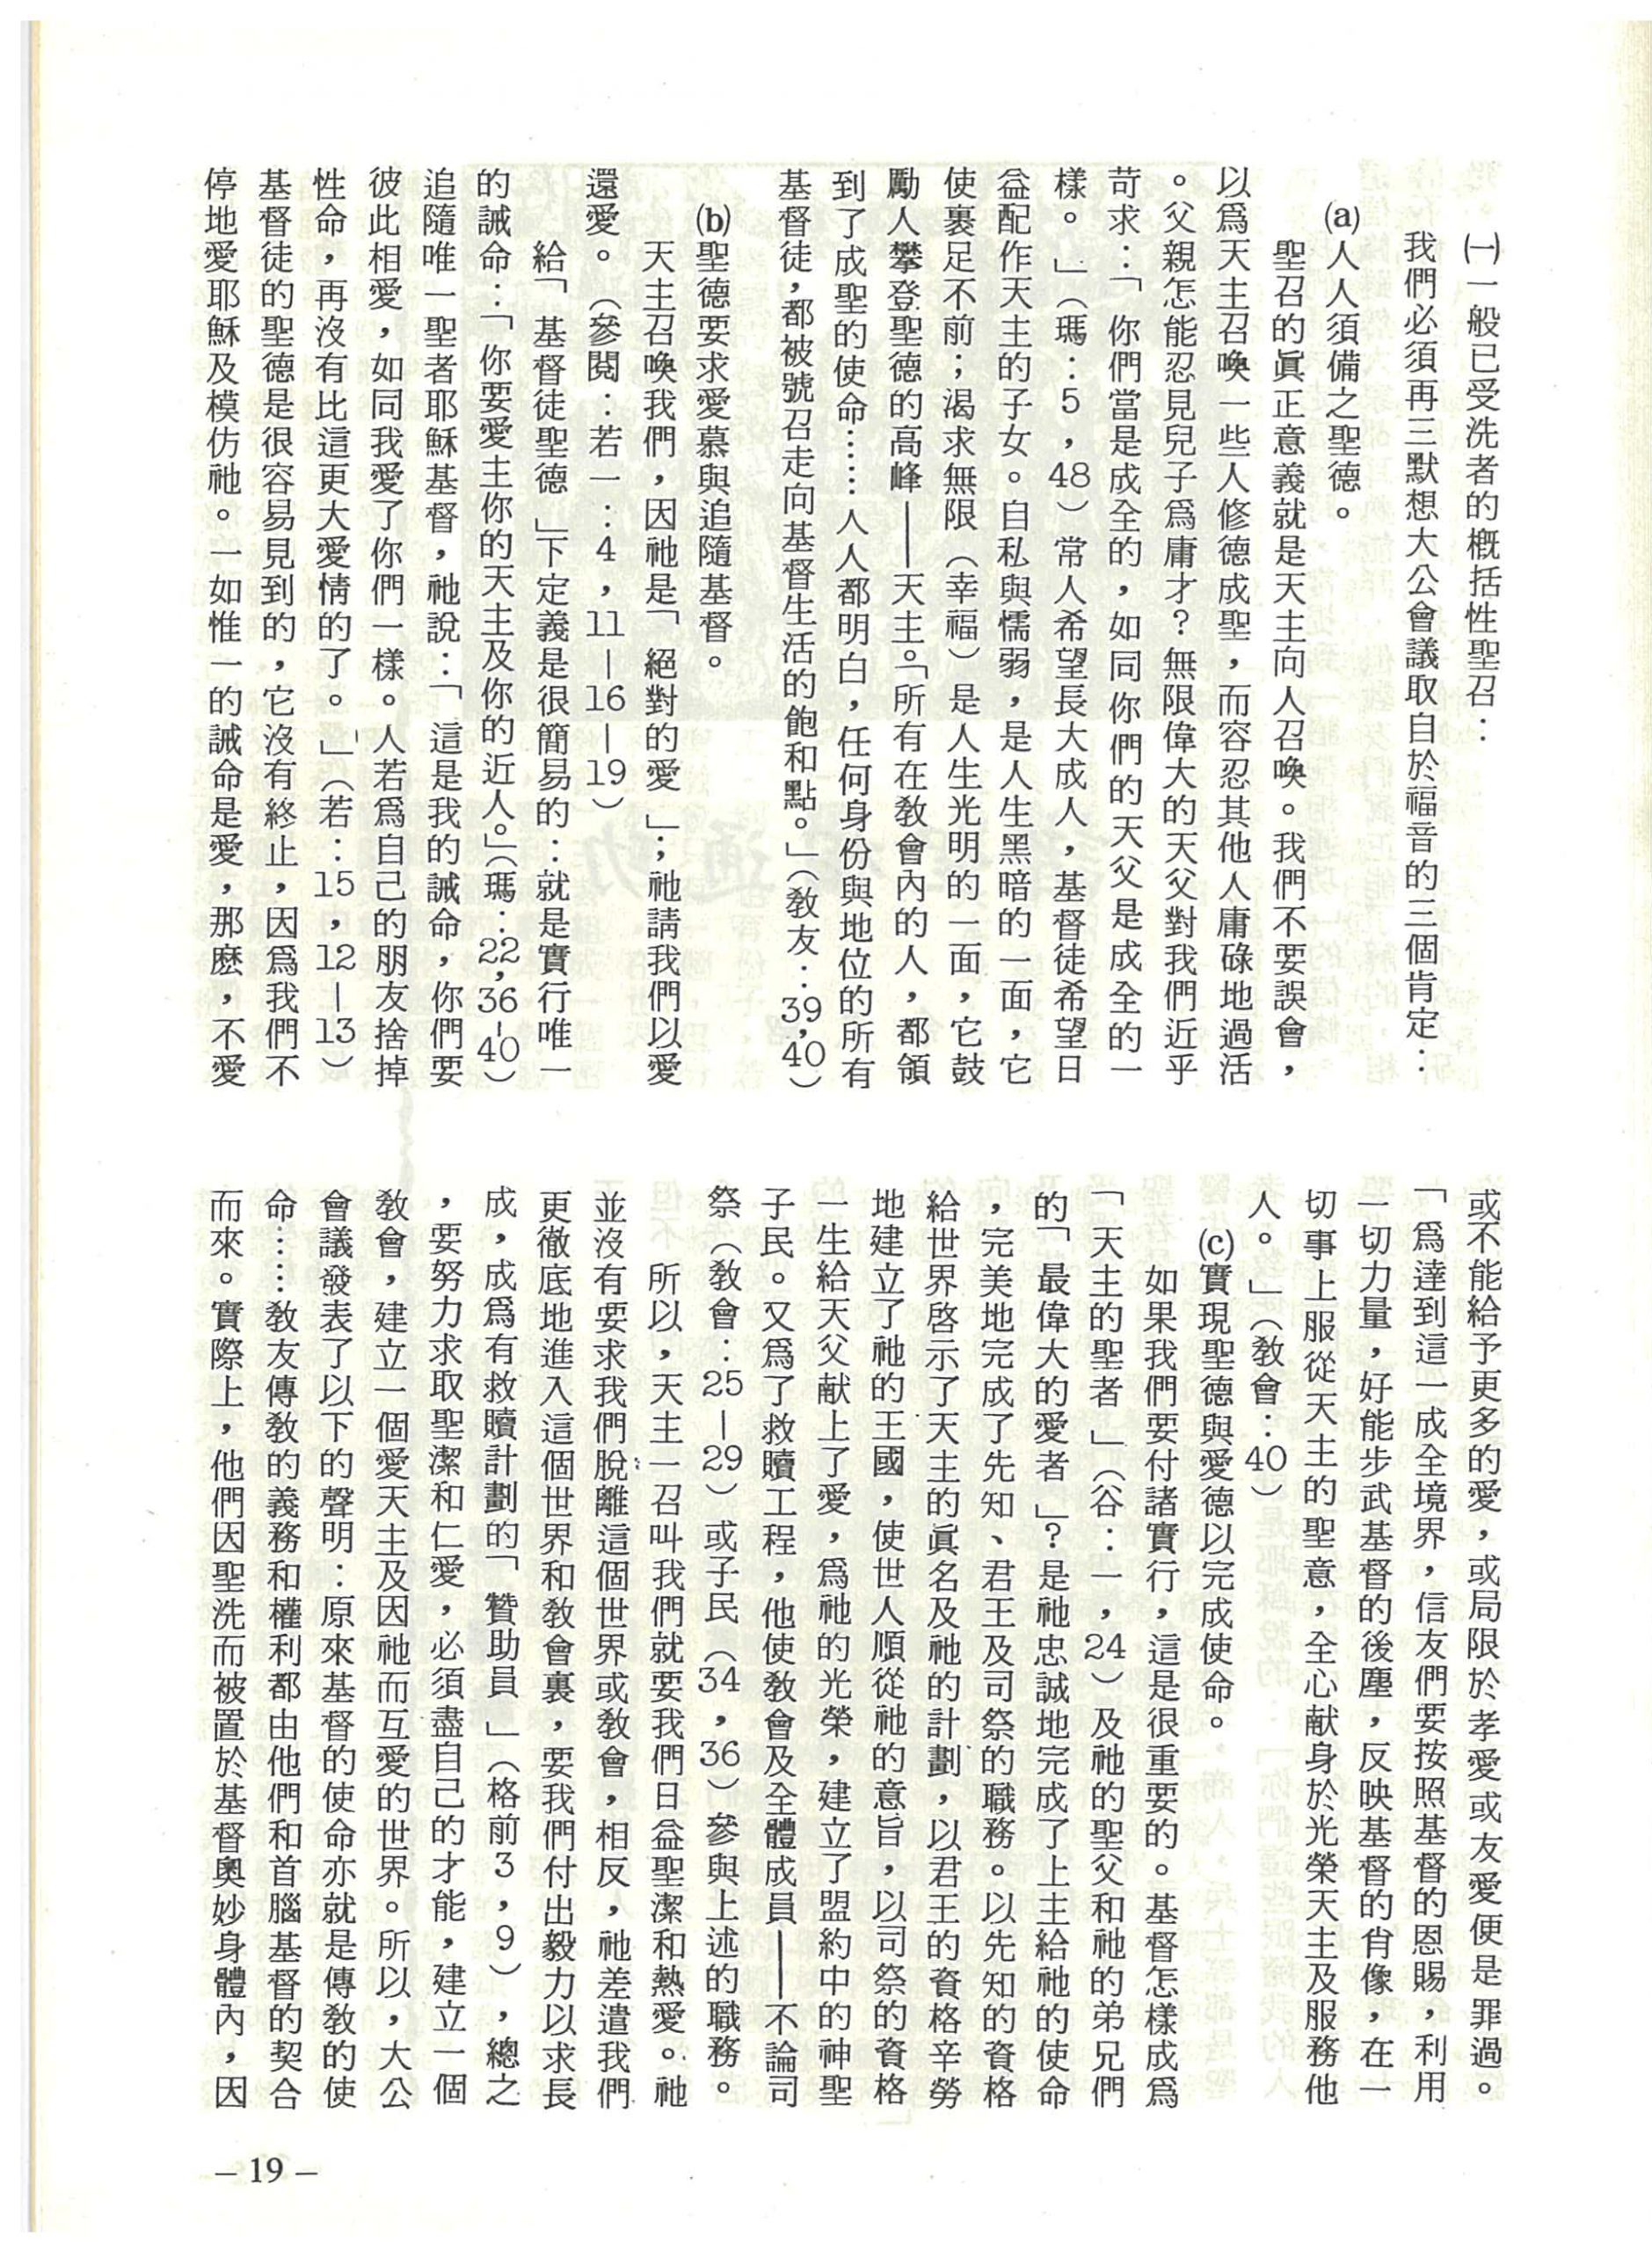 ㈠一般已受洗者的概括性聖召：
我們必須再三默想大公會議取自於福音的三個肯定：
(a)人人須備之聖德。
聖召的眞正意義就是天主向人召喚。我們不要誤會，
以爲天主召喚一些人修德成聖，而容忍其他人庸碌地過活
。父親怎能忍見兒子爲庸才？無限偉大的天父對我們近乎
苛求：「你們當是成全的，如同你們的天父是成全的一
樣。」（瑪：5，48）常人希望長大成人，基督徒希望日
益配作天主的子女。自私與懦弱，是人生黑暗的一面，它
使裹足不前；渴求無限（幸福）是人生光明的一面，它鼓
勵人攀登聖德的高峰——天主。「所有在敎會內的人，都領
到了成聖的使命……人人都明白，任何身份與地位的所有
基督徒，都被號召走向基督生活的飽和點。」（敎友：39，40）
(b)聖德要求愛慕與追隨基督。
天主召喚我們，因祂是「絕對的愛」；祂請我們以愛
還愛。（參閱：若一：4，11－16－19）
給「基督徒聖德」下定義是很簡易的：就是實行唯一
的誡命：「你要愛主你的天主及你的近人。」（瑪：22，36－40）
追隨唯一聖者耶穌基督，祂說：「這是我的誡命，你們要
彼此相愛，如同我愛了你們一樣。人若爲自己的朋友捨掉
性命，再沒有比這更大愛情的了。」（若：15，12－13）
基督徒的聖德是很容易見到的，它沒有終止，因爲我們不
停地愛耶穌及模仿祂。一如惟一的誡命是愛，那麽，不愛
或不能給予更多的愛，或局限於孝愛或友愛便是罪過。
「爲達到這一成全境界，信友們要按照基督的恩賜，利用
一切力量，好能步武基督的後塵，反映基督的肖像，在一
切事上服從天主的聖意，全心献身於光榮天主及服務他
人。」（敎會：40）
(c)實現聖德與愛德以完成使命。
如果我們要付諸實行，這是很重要的。基督怎樣成爲
「天主的聖者」（谷：一，24）及祂的聖父和祂的弟兄們
的「最偉大的愛者」？是祂忠誠地完成了上主給祂的使命
，完美地完成了先知、君王及司祭的職務。以先知的資格
給世界啓示了天主的眞名及祂的計劃，以君王的資格辛勞
地建立了祂的王國，使世人順從祂的意旨，以司祭的資格
一生給天父献上了愛，爲祂的光榮，建立了盟約中的神聖
子民。又爲了救贖工程，他使敎會及全體成員——不論司
祭（敎會：25－29）或子民（34，36）參與上述的職務。
所以，天主一召叫我們就要我們日益聖潔和熱愛。祂
並沒有要求我們脫離這個世界或敎會，相反，祂差遣我們
更徹底地進入這個世界和敎會裏，要我們付出毅力以求長
成，成爲有救贖計劃的「贊助員」（格前3，9），總之
，要努力求取聖潔和仁愛，必須盡自己的才能，建立一個
敎會，建立一個愛天主及因祂而互愛的世界。所以，大公
會議發表了以下的聲明：原來基督的使命亦就是傳敎的使
命……敎友傳敎的義務和權利都由他們和首腦基督的契合
而來。實際上，他們因聖洗而被置於基督奧妙身體內，因
－19－